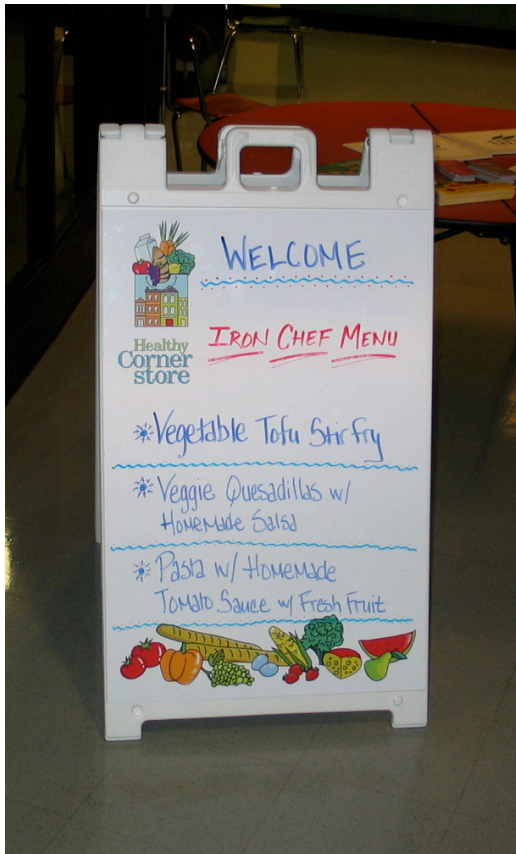 WELCOME
Healthy
Corner
store
IRON CHEF MENU
Vegetable Tofu Stir fry
Veggie Quesadillas w/
Homemade Salsa
Pasta w/ Homemade
Tomato Sauce w/ Fresh Fruit